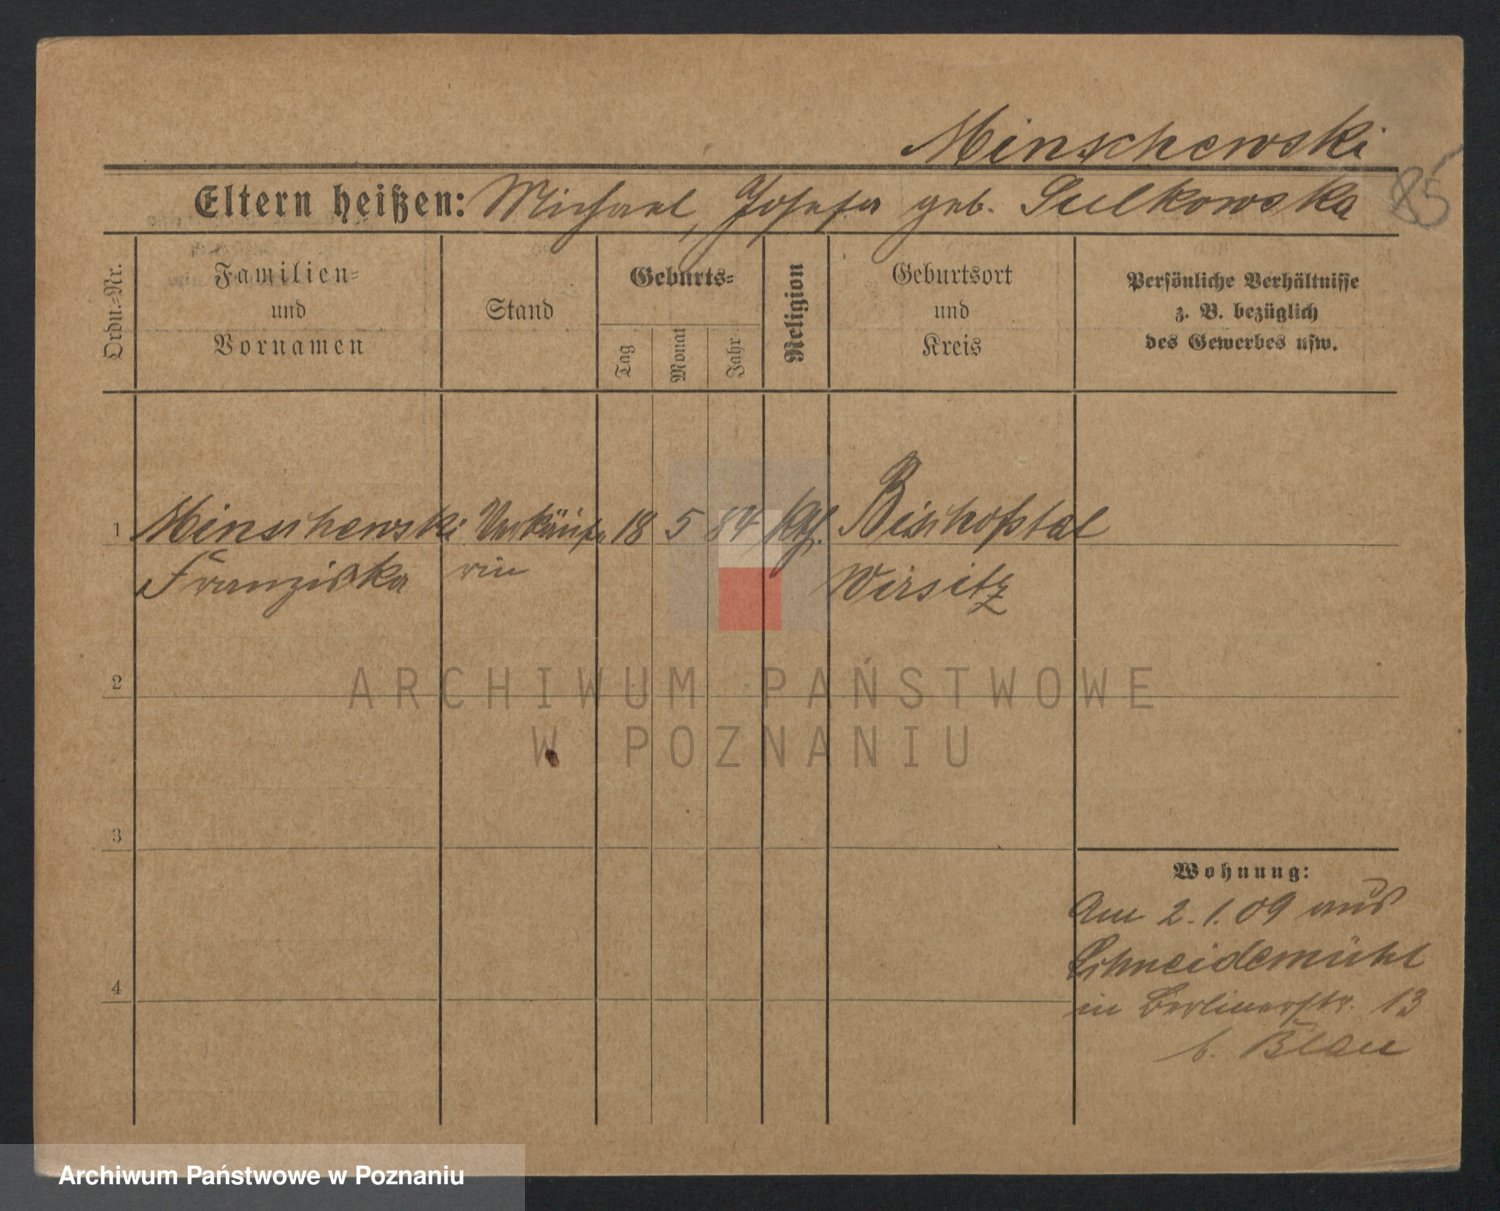 Minschewski
Eltern heißen: Michael, Josefa geb. Sulkowska 85
Ordn.-Nr.
Familien-
und
Vornamen
Stand
Geburts-
Tag
Monat
Jahr
Religion
Geburtsort
und
Kreis
Persönliche Verhältnisse
z. B. bezüglich
des Gewerbes usw.
1 Minschewski Verkäufe 18 5 84 kth. Bischofstal
Franziska rin Wirsitz
2
ARCHIWUM PAŃSTWOWE
W POZNANIU
3
Wohnung:
Am 2.1.09 aus
Schneidemühl
4
in Berlinerstr. 13
b. Blau
Archiwum Państwowe w Poznaniu